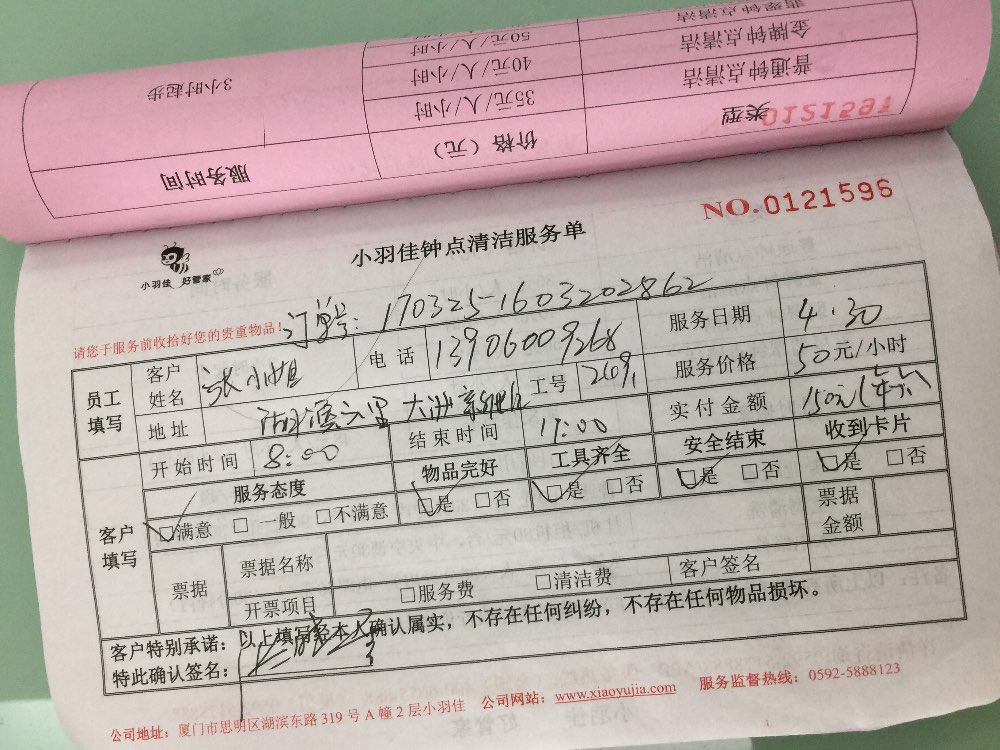 翡翠钟点清洁
金牌钟点清洁 50元/人/小时
普通钟点清洁 40元/人/小时 3小时起步
35元/人/小时
类型 价格（元） 服务时间
0121597
NO.0121596
小羽佳 好管家
小羽佳钟点清洁服务单
请您于服务前收拾好您的贵重物品!
订单号: 170325-1603202862
员工填写 客户姓名 张小姐 电话 13906009268 服务日期 4.30
地址 湖滨六里 大洲 工号 2609 服务价格 50元/小时
开始时间 8:00 结束时间 11:00 实付金额 150元
客户填写 服务态度 物品完好 工具齐全 安全结束 收到卡片
□满意 □一般 □不满意 □是 □否 □是 □否 □是 □否 □是 □否
票据 票据名称 票据金额
开票项目 □服务费 □清洁费 客户签名
客户特别承诺：以上填写经本人确认属实，不存在任何纠纷，不存在任何物品损坏。
特此确认签名：
公司地址：厦门市思明区湖滨东路319号A幢2层小羽佳 公司网站：www.xiaoyujia.com 服务监督热线：0592-5888123